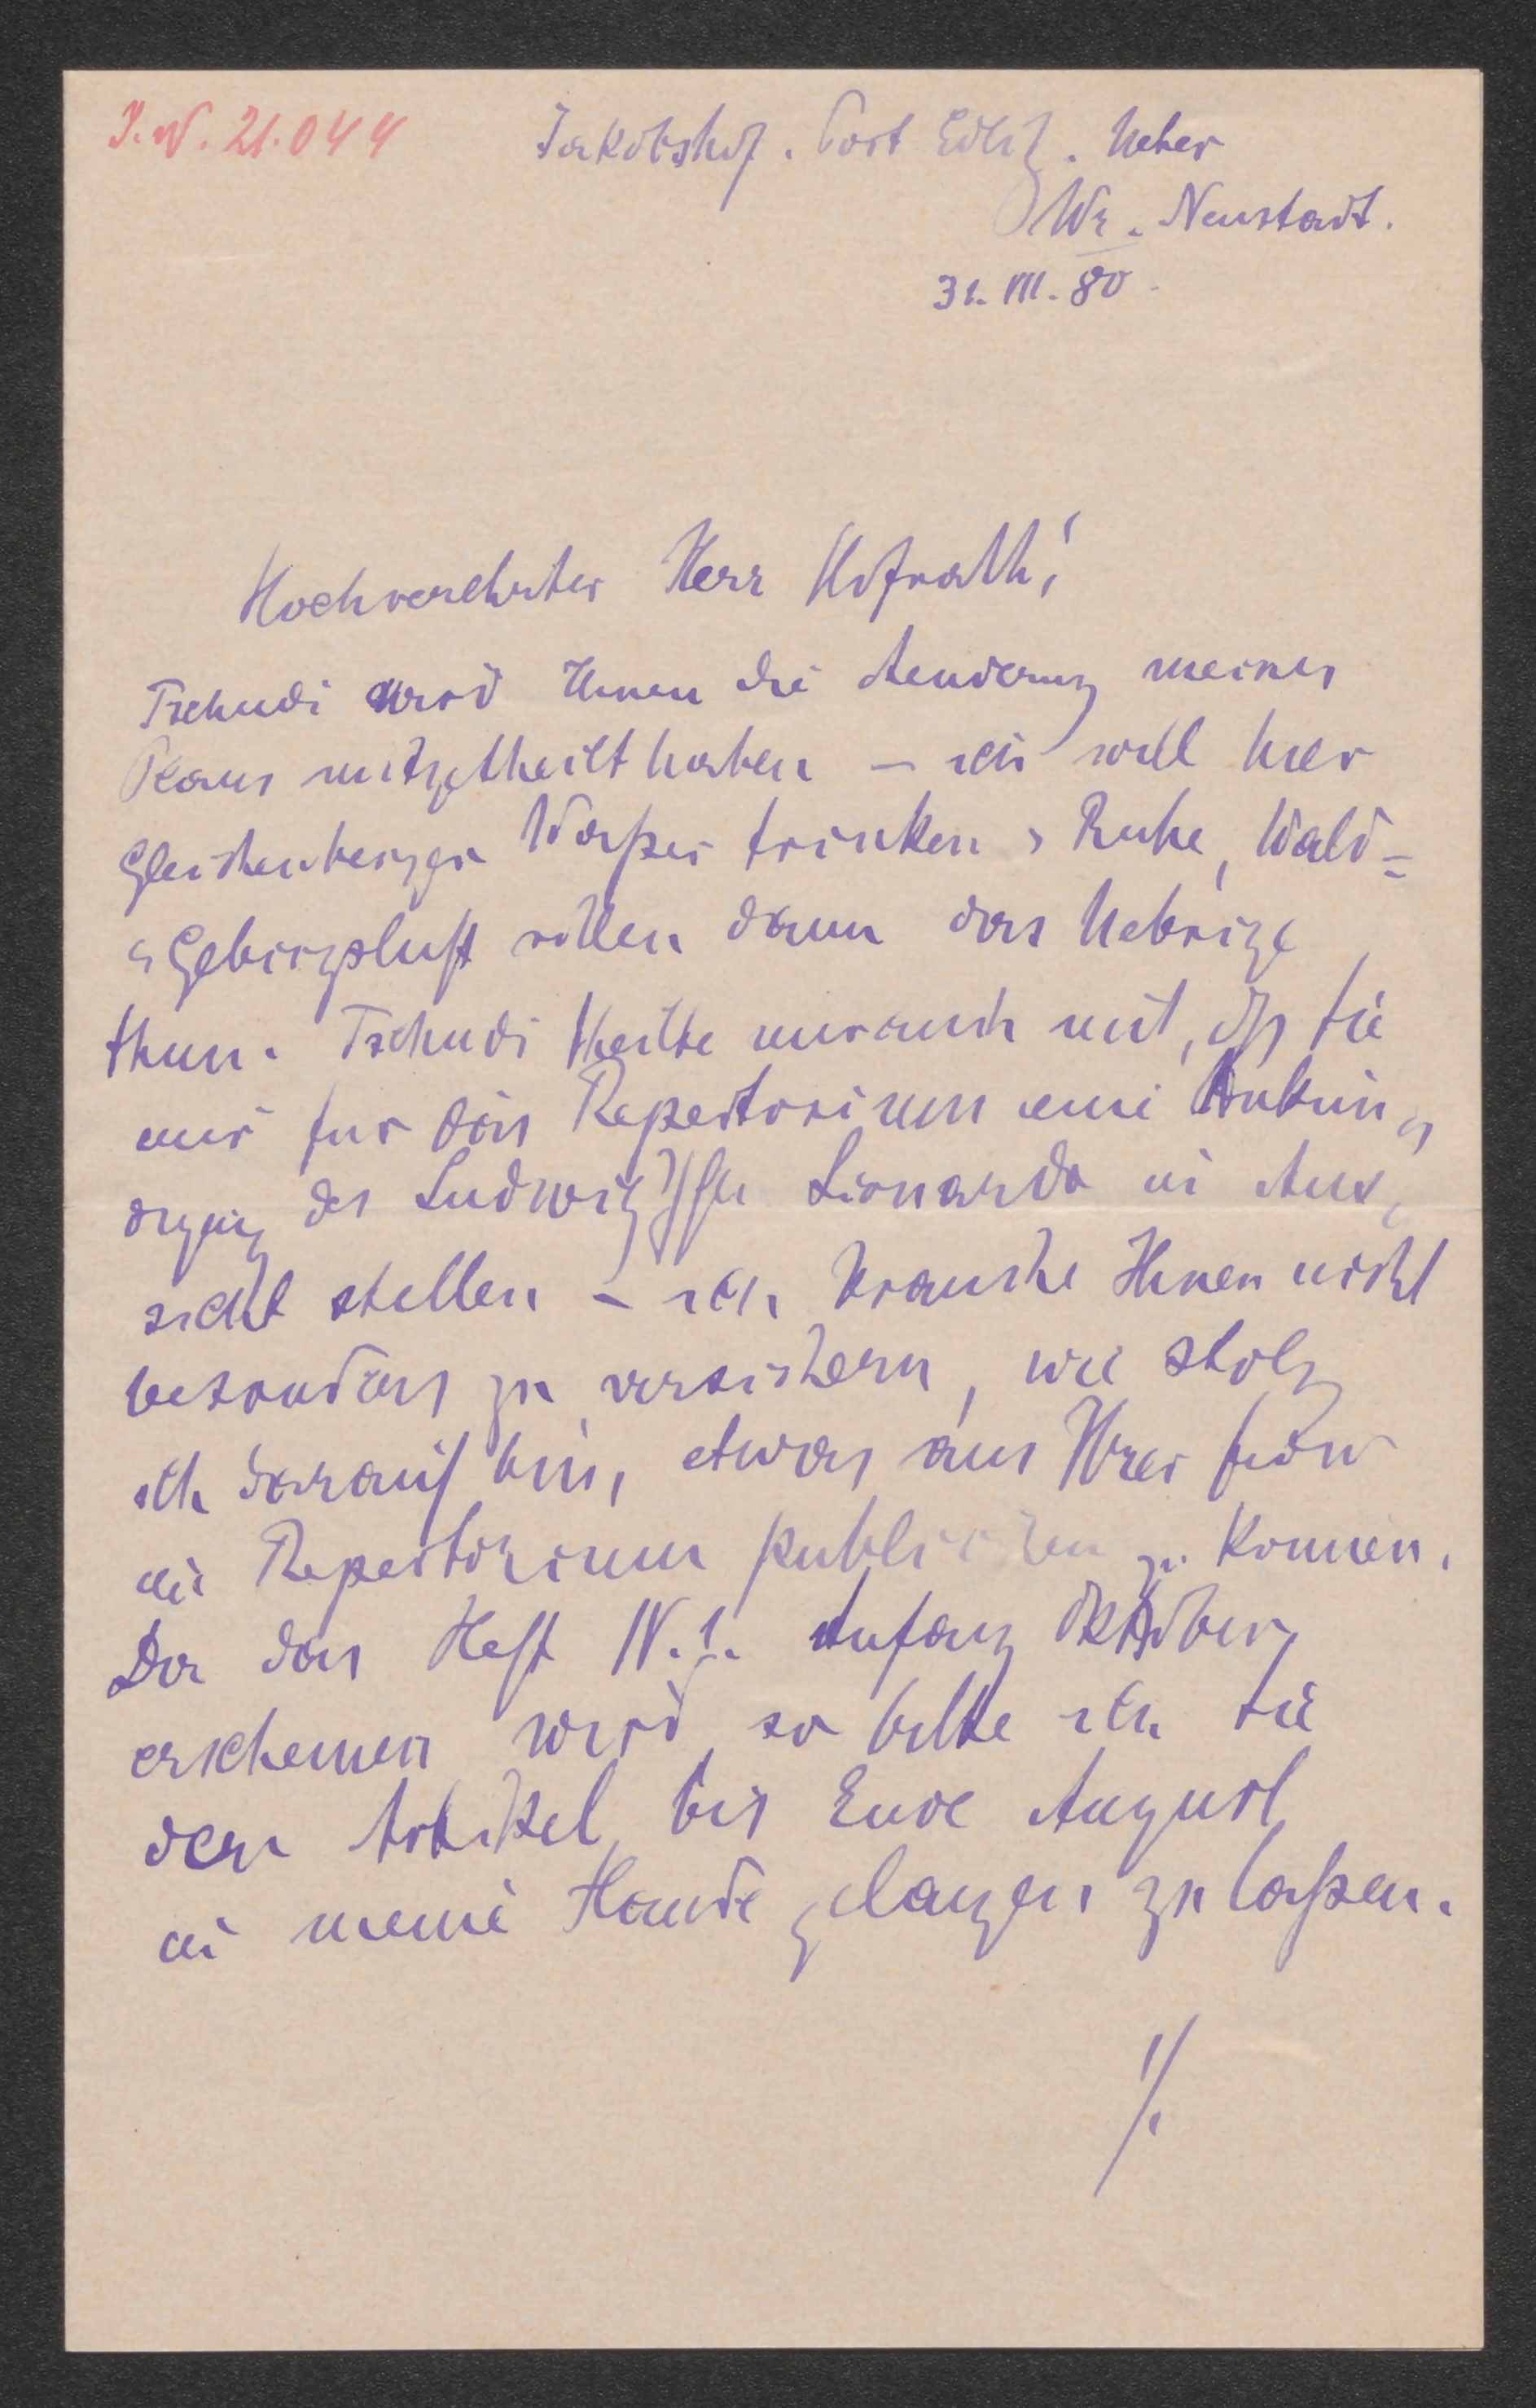 J.N. 21.044
Jakobshof. Post Edlitz. Ueber
Wr. Neustadt.
31. VII. 80.
Hochverehrter Herr Hofrath!
Tschudi wird Ihnen die Aenderung meines
Plans mitgetheilt haben – ich will hier
Gleichenberger Waßer trinken, Ruhe, Wald=
u Gebirgsluft sollen dann das Uebrige
thun. Tschudi theilte mir auch mit, dß Sie
mir für das Repertorium eine Ankün„
digung des Ludwig'schen Lionardo in Aus„
sicht stellen – ich brauche Ihnen nicht
besonders zu versichern, wie stolz
ich darauf bin, etwas aus Ihrer Feder
im Repertorium publiciren zu können.
Da das Heft IV.1. Anfang Oktober
erscheinen wird so bitte ich Sie
den Artikel bis Ende August
in meine Hände gelangen zu laßen.
./.